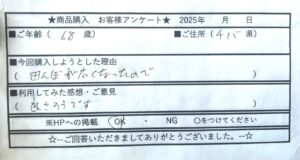 ★商品購入 お客様アンケート★ 2025年 月 日
■ご年齢 ( 68 歳) ■ご住所( 千バ 県)
■今回購入しようとした理由
( 田んぼが広くなったので )
■利用してみた感想・ご意見
( 良さそうです )
※HPへの掲載 (OK ・ NG ○をつけてください
☆--ご回答いただきましてありがとうございました。--☆